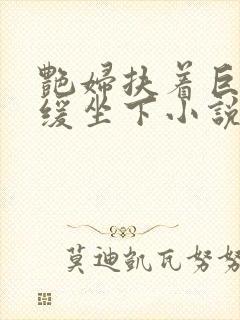 艷婦扶着巨
缓坐下小說
莫迪凱瓦努努